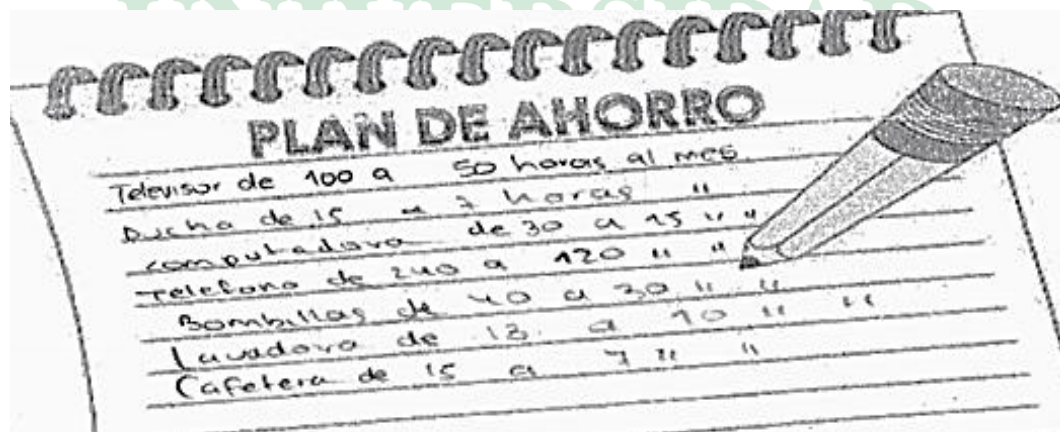 UNIVERSIDAD
PLAN DE AHORRO
Televisor de 100 a 50 horas al mes.
Ducha de 15 a 7 horas "
computadora de 30 a 15 " "
Telefono de 240 a 120 " "
Bombillas de 40 a 30 " "
lavadora de 13. a 10 " "
Cafetera de 15 a 7 " "